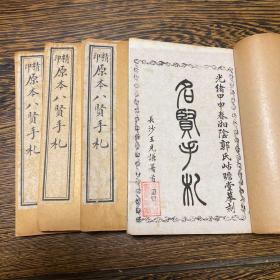 精印
原本八賢手札
精印
原本八賢手札
精印
原本八賢手札
光緒甲申春湘陰郭氏岵瞻堂摹刻
名賢手札
長沙王先謙署首